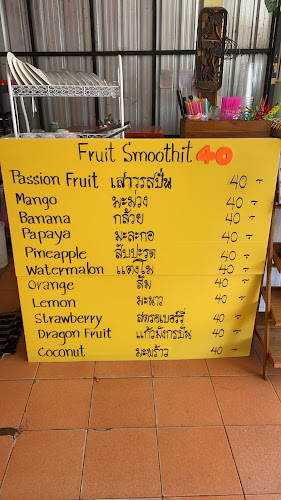 Fruit Smoothit 40
Passion Fruit เสาวรสปั่น 40 -
Mango มะม่วง 40 -
Banana กล้วย 40 -
Papaya มะละกอ 40 -
Pineapple สับปะรด 40 -
Watermalon แตงโม 40 -
Orange ส้ม 40 -
Lemon มะนาว 40 -
Strawberry สตรอเบอร์รี่ 40 -
Dragon Fruit แก้วมังกรปั่น 40 -
Coconut มะพร้าว 40 -